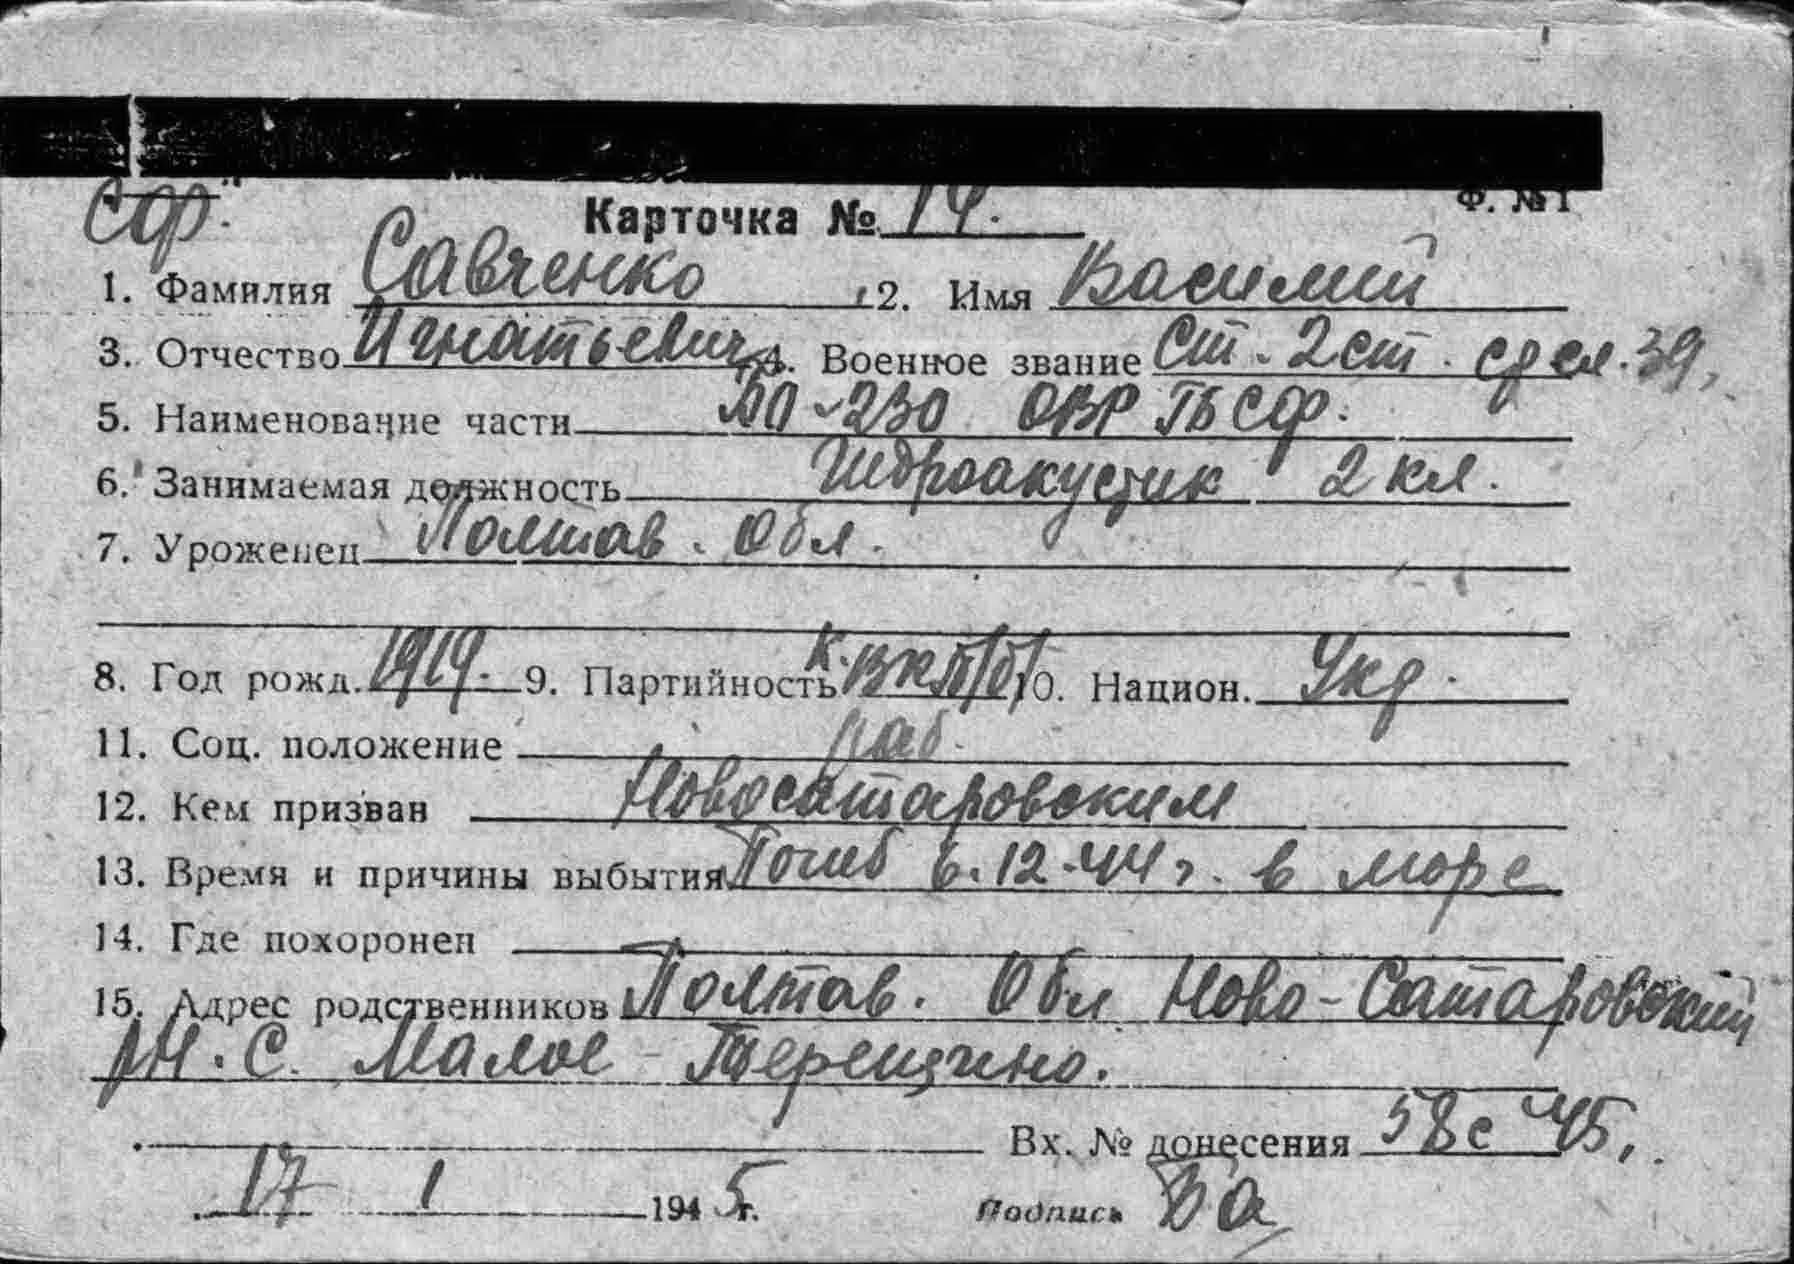 СФ.
Ф. № 1
Карточка № 14.
1. Фамилия Савченко, 2. Имя Василий
3. Отчество Игнатьевич 4. Военное звание Ст. 2 ст. ср сл. 39,
5. Наименование части БО-230 ОВР ГБ СФ.
6. Занимаемая должность Гидроакустик 2 кл.
7. Уроженец Полтав. Обл.
8. Год рожд. 1919. 9. Партийность К. ВКП/б/ 10. Национ. Укр.
11. Соц. положение раб.
12. Кем призван Новосатаровским
13. Время и причины выбытия Погиб 6.12.44 г. в море
14. Где похоронен
15. Адрес родственников Полтав. Обл Ново-Сатаровский
рн. с. Малое-Терещино.
Вх. № донесения 58с 45,.
17 1 1945 г. Подпись